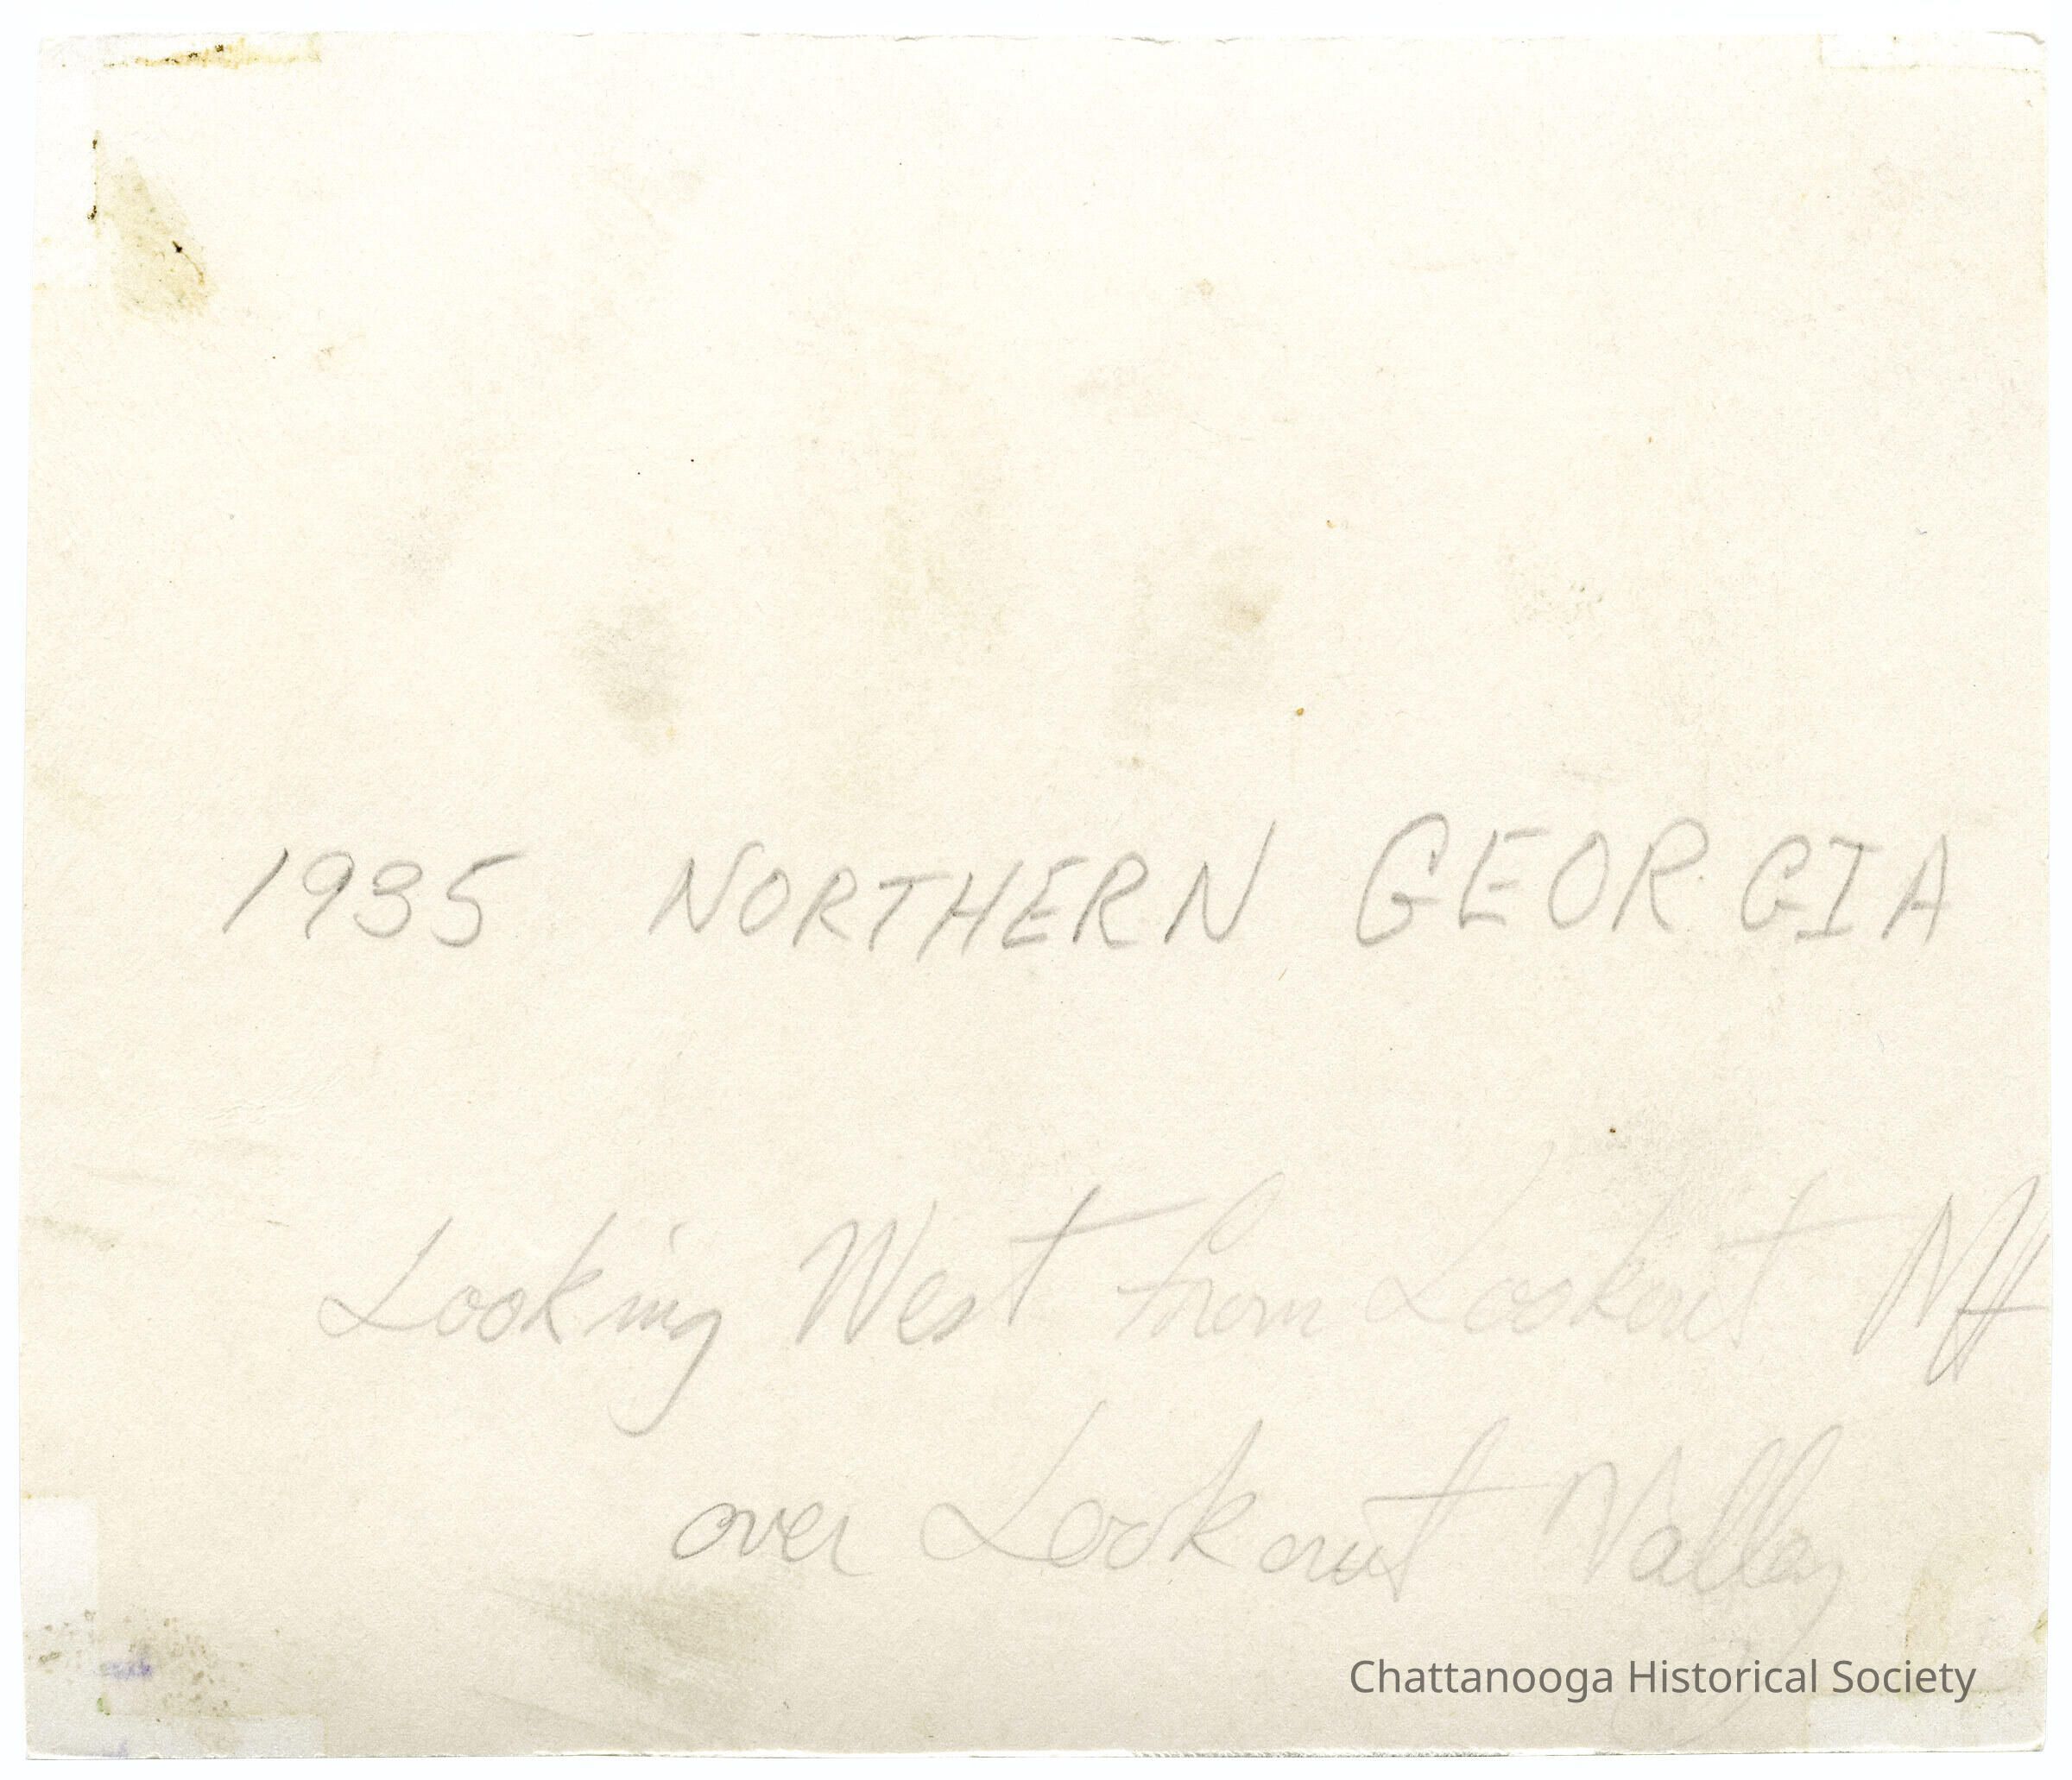 1935 NORTHERN GEORGIA
Looking West from Lookout Mt
over Lookout Valley
Chattanooga Historical Society